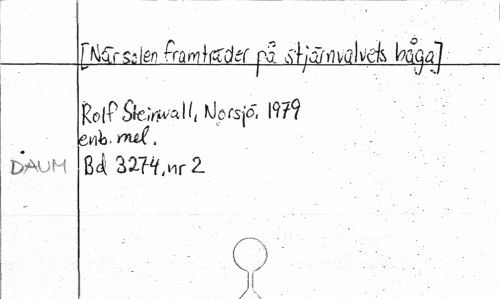 [När solen framträder på stjärnvalvets båga]
Rolf Steinvall, Norsjö, 1979
enb. mel.
DAUM Bd 3274, nr 2